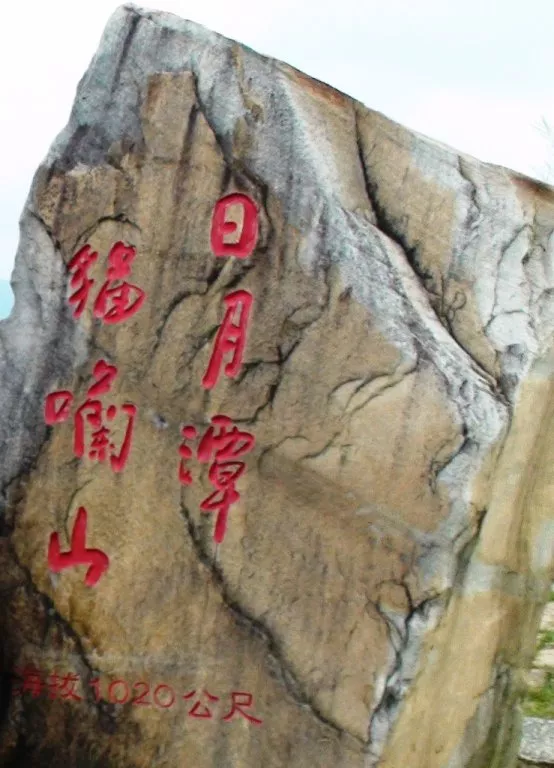 日月潭
貓囒山
海拔1020公尺